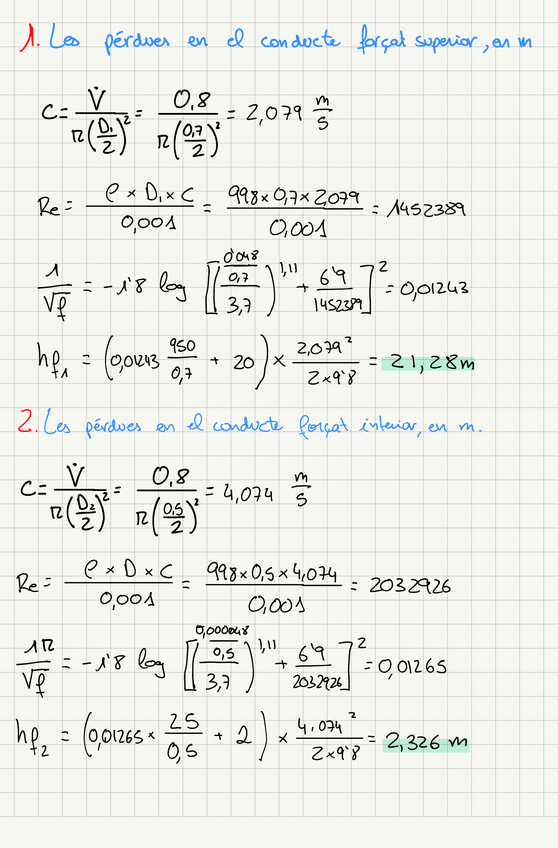 1. Les pérdues en el conducte forçat superior, en m
C = V̇ / π(D₁/2)² = 0,8 / π(0,7/2)² = 2,079 m/s
Re = ρ × D₁ × C / 0,001 = 998 × 0,7 × 2,079 / 0,001 = 1452389
1/√f = -1'8 log [((0'048/0,7)/3,7)^1,11 + 6'9/1452389]² = 0,01243
hf₁ = (0,01243 950/0,7 + 20) × 2,079²/2×9'8 = 21,28 m
2. Les pérdues en el conducte forçat inferior, en m.
C = V̇ / π(D₂/2)² = 0,8 / π(0,5/2)² = 4,074 m/s
Re = ρ × D × C / 0,001 = 998 × 0,5 × 4,074 / 0,001 = 2032926
1π/√f = -1'8 log [((0,000048/0,5)/3,7)^1,11 + 6'9/2032926]² = 0,01265
hf₂ = (0,01265 × 25/0,5 + 2) × 4,074²/2×9'8 = 2,326 m